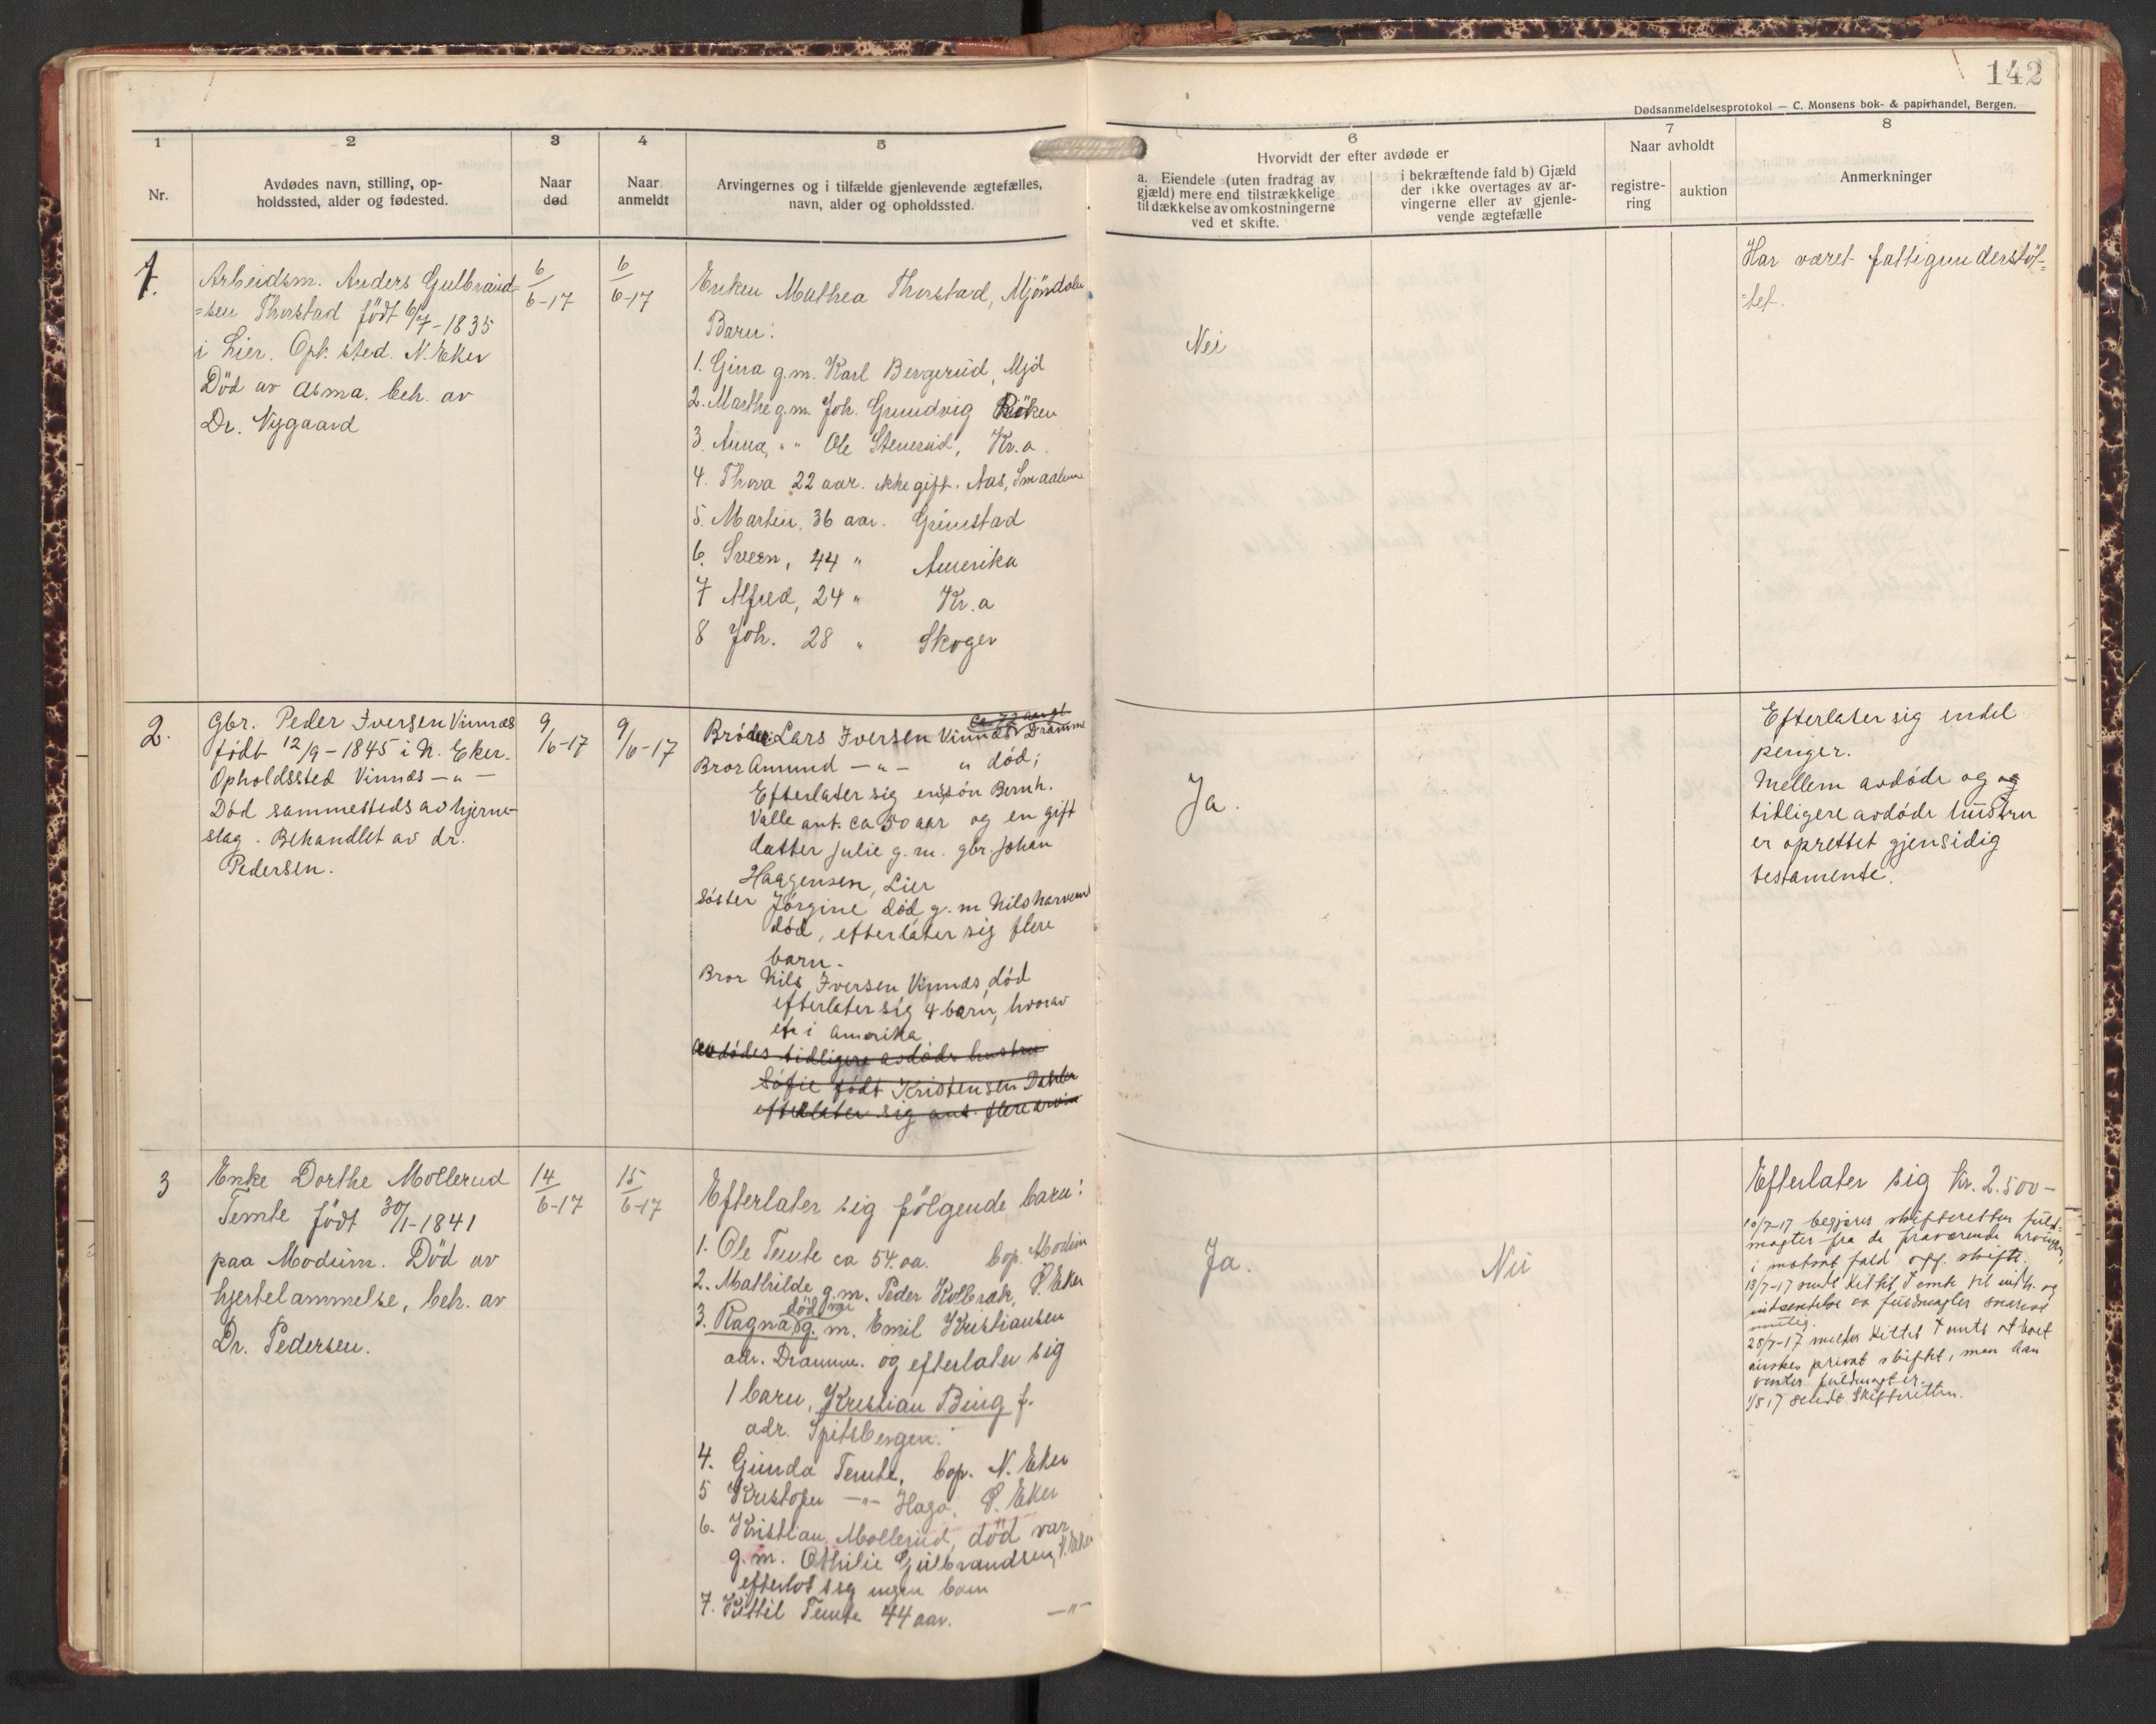 142
Dødsanmeldelsesprotokol — C. Monsens bok- & papirhandel, Bergen.
1
Nr.
2
Avdødes navn, stilling, op-
holdssted, alder og fødested.
3
Naar
død
4
Naar
anmeldt
5
Arvingernes og i tilfælde gjenlevende ægtefælles,
navn, alder og opholdssted.
6
Hvorvidt der efter avdøde er
a. Eiendele (uten fradrag av
gjæld) mere end tilstrækkelige
til dækkelse av omkostningerne
ved et skifte.
i bekræftende fald b) Gjæld
der ikke overtages av ar-
vingerne eller av gjenle-
vende ægtefælle
7
Naar avholdt
registre-
ring
auktion
8
Anmerkninger
1.
Arbeidsm. Anders Gulbrand-
=sen Thorstad født 6/7-1835
i Lier. Oph. sted. N. Eker
Död av asma. beh. av
Dr. Nygaard
6/6-17
6/6-17
Enken Mathea Thorstad, Mjöndalen
Barn:
1. Gina g.m. Karl Bergerud, Mjd
2. Marthe g.m. Joh. Grundvig Röken
3. Anna, " " Ole Stenerud, Kr.a.
4. Thora 22 aar. ikke gift. Aas, Smaalene
5. Martin, 36 aar. Grimstad
6. Sveen, 44 " Amerika
7 Alfred, 24 " Kr.a
8 Joh. 28 " Skoger
Nei
Har været fattigunderstöt-
=tet.
2.
Gbr. Peder Iversen Vinnæs
født 12/9-1845 i N. Eker.
Opholdssted Vinnæs —"—
Död sammesteds av hjerne-
slag. Behandlet av dr.
Pedersen.
9/6-17
9/6-17
Brödre: Lars Iversen Vinnæs Dramme
Bror Amund —"— " död;
Efterlater sig en sön Bernh.
Valle ant. ca 50 aar og en gift
datter Julie g.m. gbr. Johan
Haagensen, Lier
Söster Jörgine död g.m Nils
död, efterlater sig flere
barn.
Bror Nils Iversen Vinnæs, död
efterlater sig 4 barn, hvorav
en i Amerika
avdödes tidligere avdöde hustru
Sofie født Kristensen
efterlater sig ant. flere
Ja.
Efterlater sig endel
penger.
Mellem avdöde og og
tidligere avdöde hustru
er oprettet gjensidig
testamente.
3
Enke Dorthe Mollerud
Temte født 30/1-1841
paa Modum. Död av
hjertelammelse, beh. av
Dr. Pedersen.
14/6-17
15/6-17
Efterlater sig fölgende barn:
1. Ole Temte ca 54. aa. bop. Modum
2. Mathilde g.m. Peder Kolbræk, Ö. Eker
3. Ragna död g. m. Emil Kristiansen
adr. Dramm. og efterlater sig
1 barn, Kristian Bing f.
adr. Spitsbergen.
4. Gunda Temte, bop. N. Eker
5 Kristofer —"— Haga, Ö. Eker
6. Kristian Mollerud, död var
g.m. Othilie Gulbrandsen, N. Eker
efterlot sig ingen barn
7. Kittil Temte 44 aar. —"—
Ja.
Nei
Efterlater sig Kr. 2.500-
10/7-17 begjærer skifteretten fuld-
magter fra de fraværende arvinger,
i motsat fald off. skifte.
13/7-17 sendt Kittil Temte til indh. og
indsendelse av fuldmagter snarest
mulig.
28/7-17 melder Kittel Temte at boet
önskes privat skiftet, men han
venter fuldmagter.
1/8 17 sendt Skifteretten.